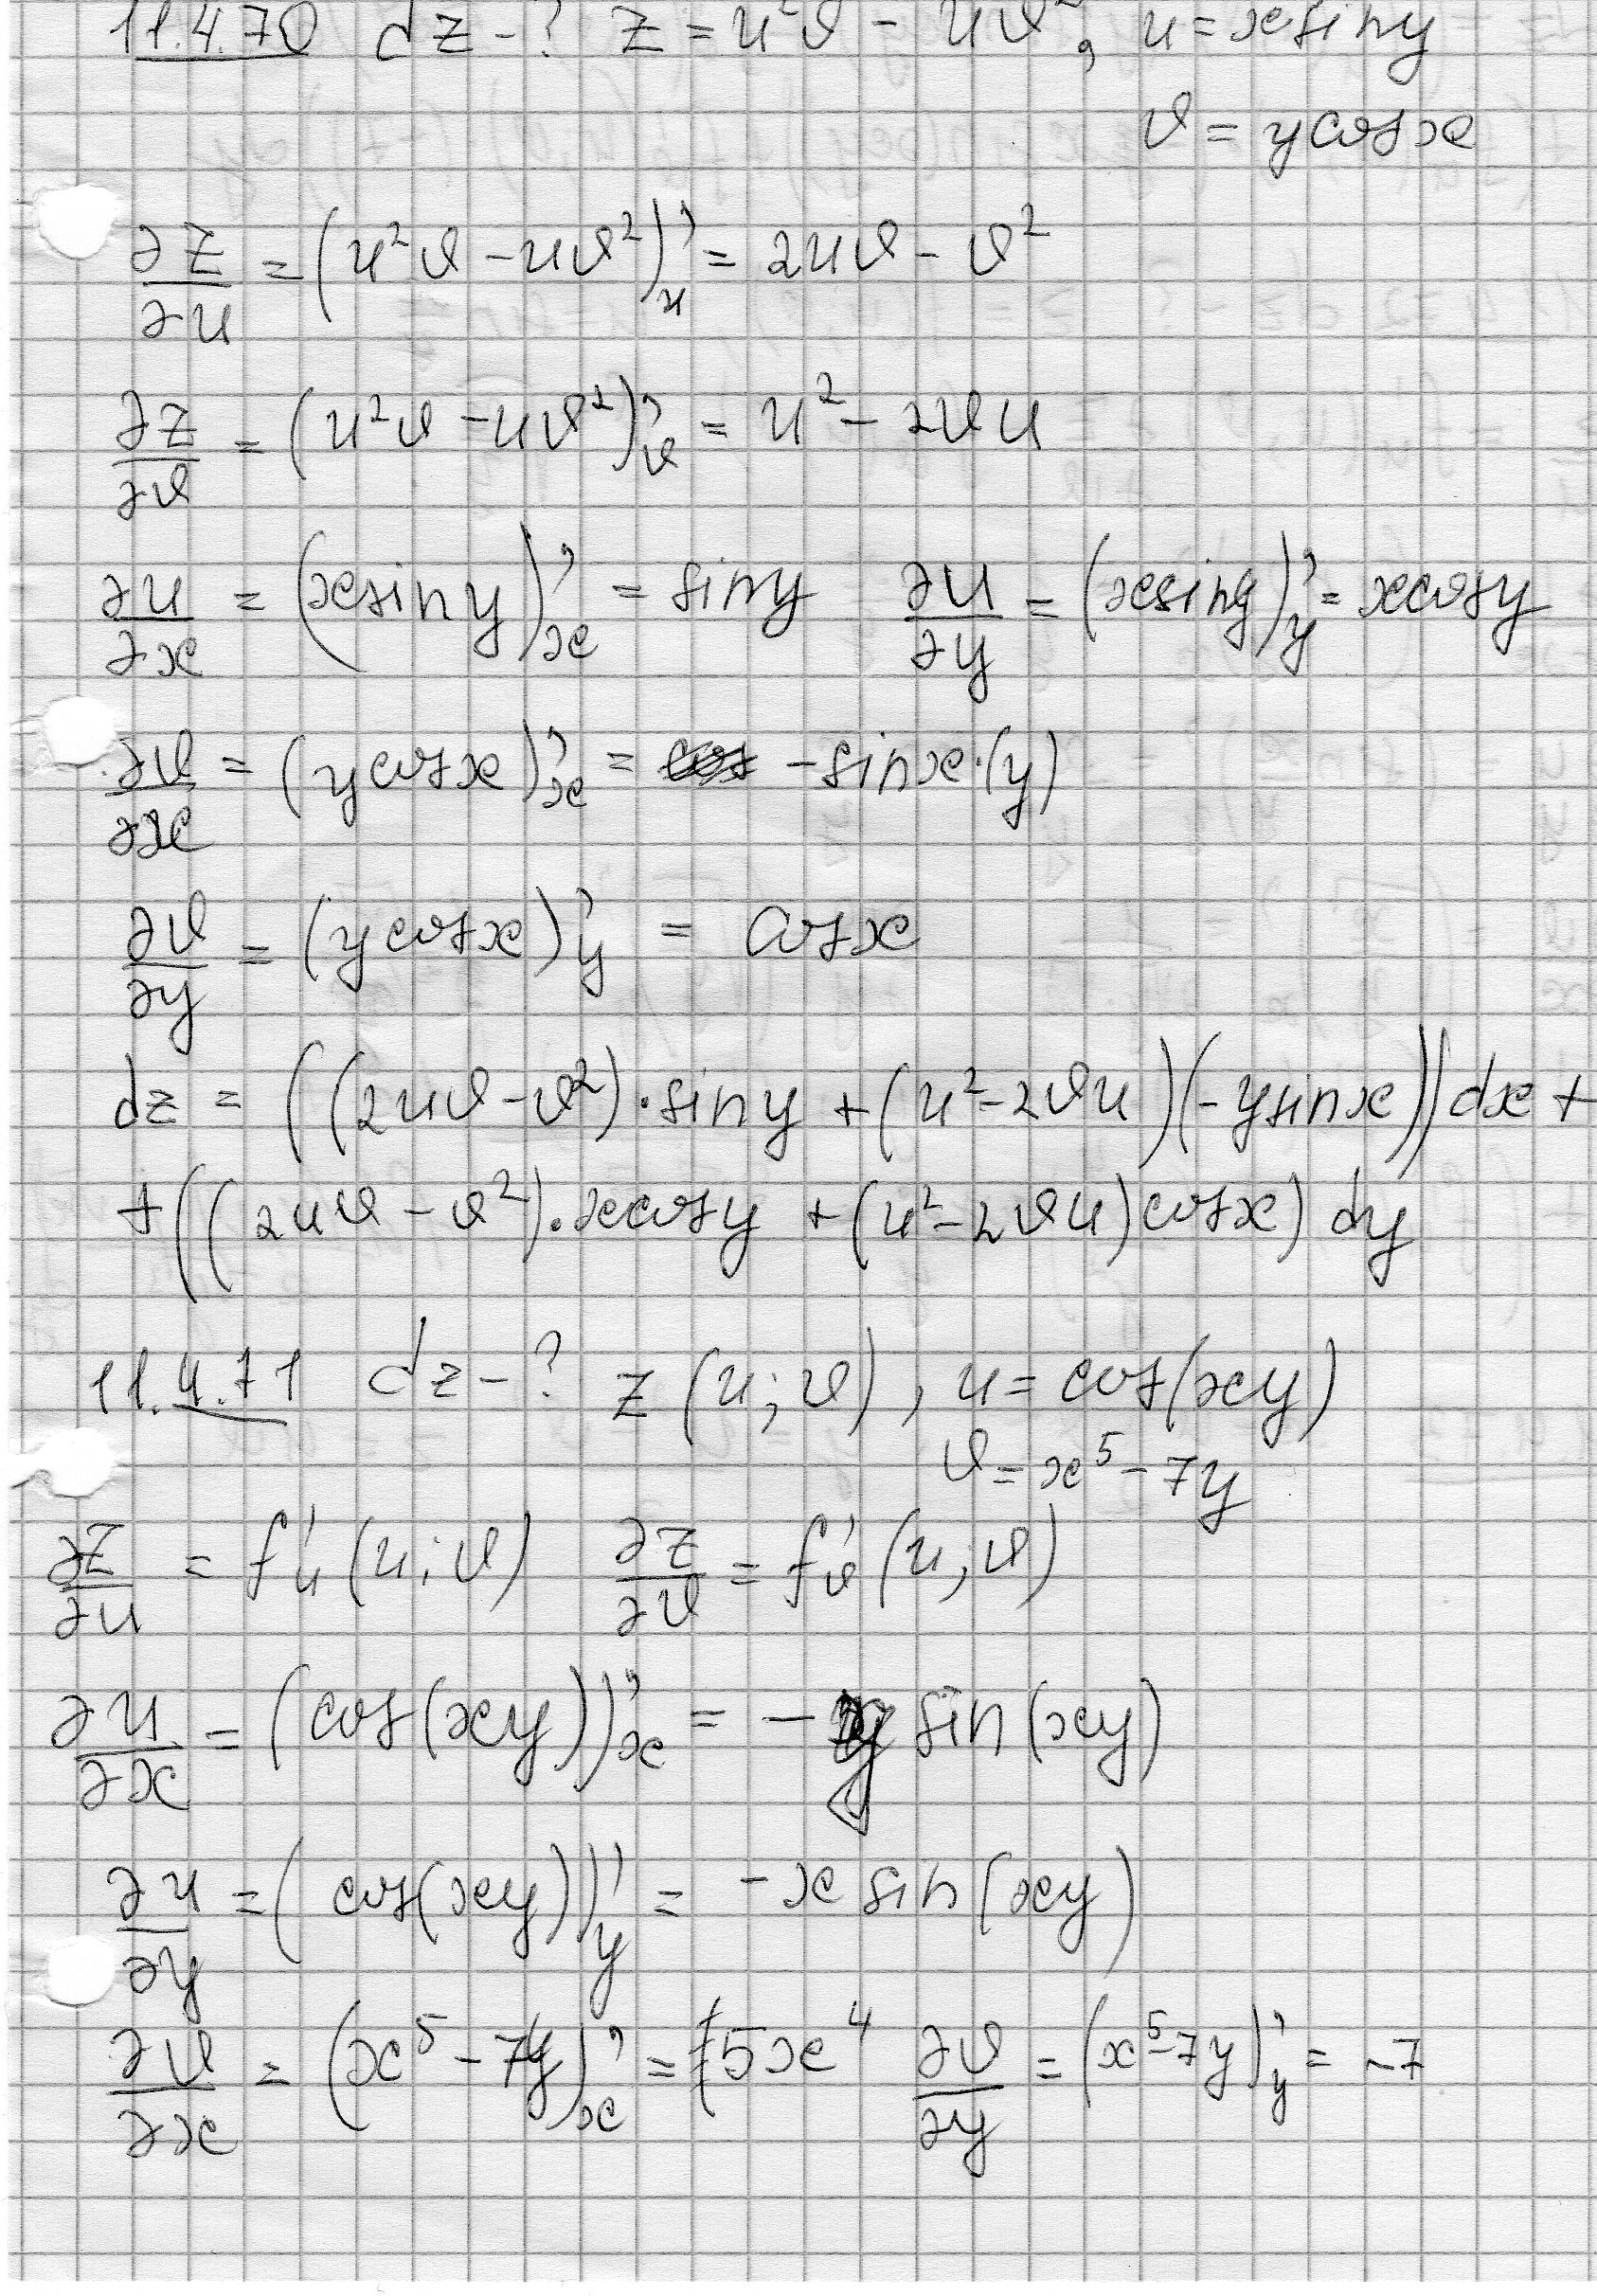 11.4.70 dz - ? z = u²v - uv², u = x sin y
v = y cos x
∂z/∂u = (u²v - uv²)'ᵤ = 2uv - v²
∂z/∂v = (u²v - uv²)'ᵥ = u² - 2vu
∂u/∂x = (x sin y)'ₓ = sin y ∂u/∂y = (x sin y)'_y = x cos y
∂v/∂x = (y cos x)'ₓ = - sin x · (y)
∂v/∂y = (y cos x)'_y = cos x
dz = ((2uv - v²) · sin y + (u² - 2vu)(-y sin x)) dx +
+ ((2uv - v²) · x cos y + (u² - 2vu) cos x) dy
11.4.71 dz - ? z (u; v), u = cos(xy)
v = x⁵ - 7y
∂z/∂u = f'ᵤ (u; v) ∂z/∂v = f'ᵥ (u; v)
∂u/∂x = (cos(xy))'ₓ = - y sin(xy)
∂u/∂y = (cos(xy))'_y = - x sin(xy)
∂v/∂x = (x⁵ - 7y)'ₓ = 5x⁴ ∂v/∂y = (x⁵ - 7y)'_y = -7